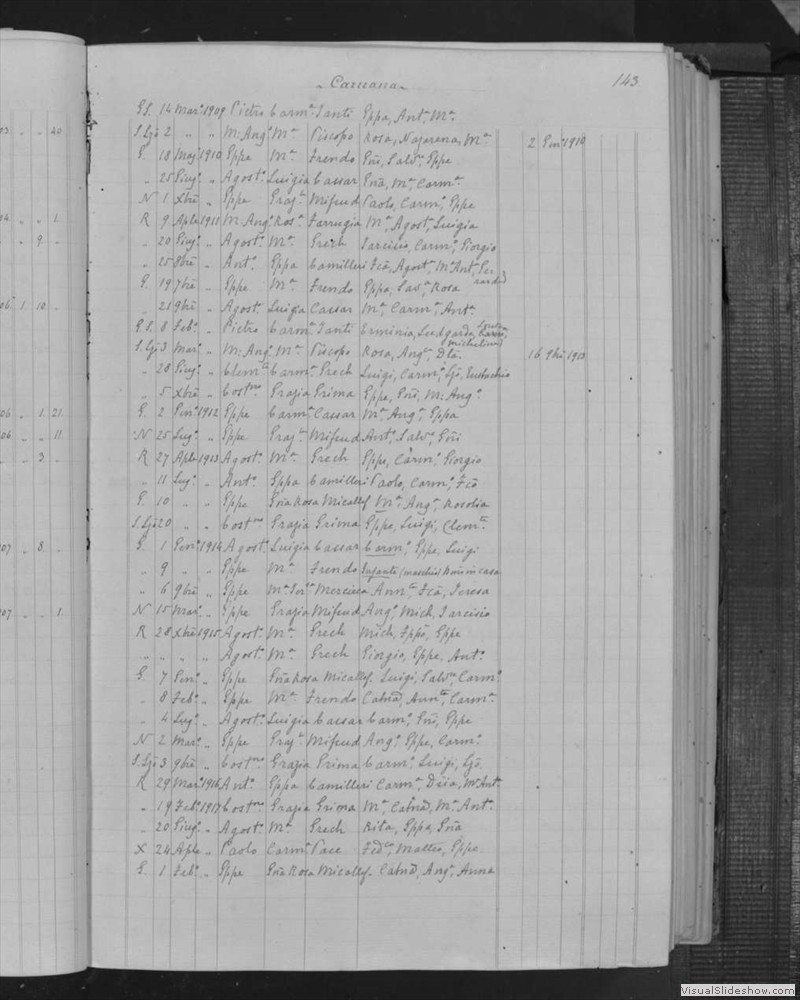 Caruana
143
G.S. 14 Mar: 1909 Pietro Carm.a Santi Eppa, Ant.a M.a
S.Ljo 2 " " M: Ang.o M.a Piscopo Rosa, Nazarena, M.a 2 Gen: 1910
G. 18 Mag: 1910 Eppe M.a Frendo Gni, Salv.e, Eppe
" 25 Giug: " Agost.o Luigia Cassar Gna, M.a, Carm.a
N 1 Xbre " Eppe Graz.a Mifsud Paolo, Carm.o, Eppe
R 9 Aple 1911 M: Ang.o Ros.a Farrugia M.a, Agost., Luigia
" 20 Giug: " Agost.o M.a Grech Tarcisio, Carm.o, Giorgio
" 25 8bre " Ant.o Eppa Camilleri Fca, Agost.a, M.a Ant.a
G. 19 7bre " Eppe M.a Frendo Eppa, Sav.a, Rosa
" 21 9bre " Agost. Luigia Cassar M.a, Carm.a, Ant.a
G.S. 8 Feb: " Pietro Carm.a Santi Erminia, Ludgarda, Michelina
S.Ljo 3 Mar: " M: Ang.o M.a Piscopo Rosa, Ang.a, Dla. 16 9bre 1913
" 28 Giug: " Clem.te Carm.a Grech Luigi, Carm.o, Ljo, Eustachio
" 5 Xbre " Cost.no Grazia Grima Eppe, Gni, M: Ang.o
G. 2 Gen: 1912 Eppe Carm.a Cassar M.a, Ang.a, Eppa
N 25 Lug: " Eppe Graz.a Mifsud Ant.o, Salv.e, Gni
R 27 Aple 1913 Agost.o M.a Grech Eppe, Carm.o, Giorgio
" 11 Lug: " Ant.o Eppa Camilleri Paolo, Carm.o, Fco
G. 10 " " Eppe Gna Rosa Micallef M.a, Ang.a, Rosolia
S.Ljo 20 " " Cost.no Grazia Grima Eppe, Luigi, Clem.te
G. 1 Gen: 1914 Agost. Luigia Cassar Carm.o, Eppe, Luigi
" 9 " " Eppe M.a Frendo Infante (maschio)
" 6 9bre " Eppe M.a Mercieca Ann.ta, Fca, Teresa
N 15 Mar: " Eppe Grazia Mifsud Ang.o, Mich, Tarcisio
R 28 Xbre 1915 Agost. M.a Grech Mich, Eppe
" " " " Agost. M.a Grech Giorgio, Eppe, Ant.o
G. 7 Gen: " Eppe Gna Rosa Micallef. Luigi, Salv.e, Carm.o
" 8 Feb: " Eppe M.a Frendo Catna, Ann.ta, Carm.a
" 4 Lug: " Agost.o Luigia Cassar Carm.o, Gni, Eppe
N 2 Mar: " Eppe Graz.a Mifsud Ang.o, Eppe, Carm.o
S.Ljo 3 9bre " Cost.no Grazia Grima Carm.o, Luigi, Ljo
R 29 Mar: 1916 Ant.o Eppa Camilleri Carm.a, M.a Ant.a
" 19 Feb: 1917 Cost.no Grazia Grima M.a, Catna, M.a Ant.a
" 20 Giug: " Agost.o M.a Grech Rita, Eppa, Gna
X 24 Aple " Paolo Carm.a Pace Fed.co, Matteo, Eppe
G. 1 Feb: " Eppe Gna Rosa Micallef. Catna, Ang.a, Anna
VisualSlideshow.com